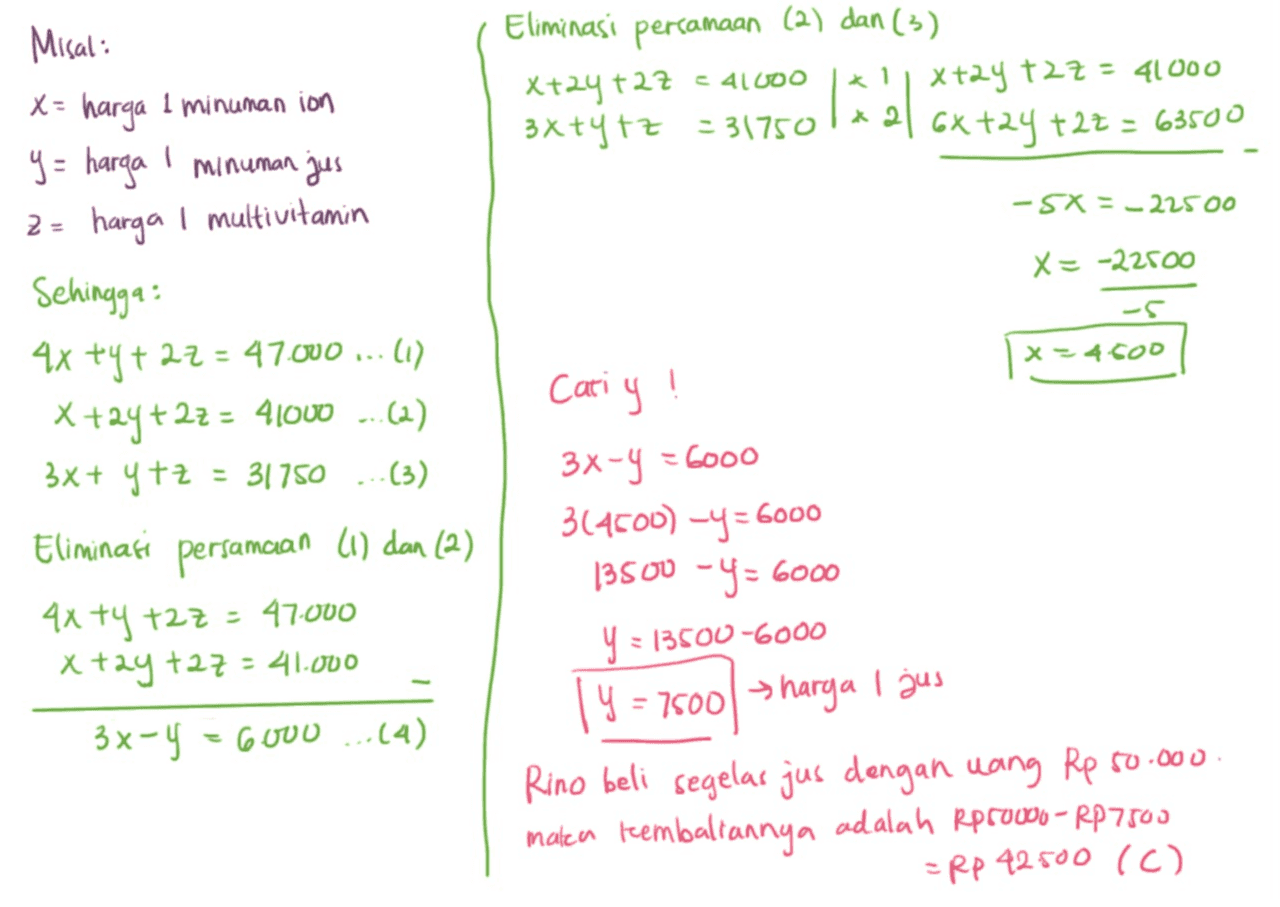 Misal:
x = harga 1 minuman ion
y = harga 1 minuman jus
z = harga 1 multivitamin
Sehingga:
4x + y + 2z = 47.000 ... (1)
x + 2y + 2z = 41000 ... (2)
3x + y + z = 31750 ... (3)
Eliminasi persamaan (1) dan (2)
4x + y + 2z = 47.000
x + 2y + 2z = 41.000 –
3x – y = 6000 ... (4)
Eliminasi persamaan (2) dan (3)
x + 2y + 2z = 41000 | × 1 | x + 2y + 2z = 41000
3x + y + z = 31750 | × 2 | 6x + 2y + 2z = 63500 –
-5x = -22500
x = -22500
-5
x = 4500
Cari y !
3x – y = 6000
3(4500) – y = 6000
13500 – y = 6000
y = 13500 – 6000
y = 7500 → harga 1 jus
Rino beli segelas jus dengan uang Rp 50.000.
maka kembaliannya adalah Rp50000 – Rp7500
= Rp 42500 (C)